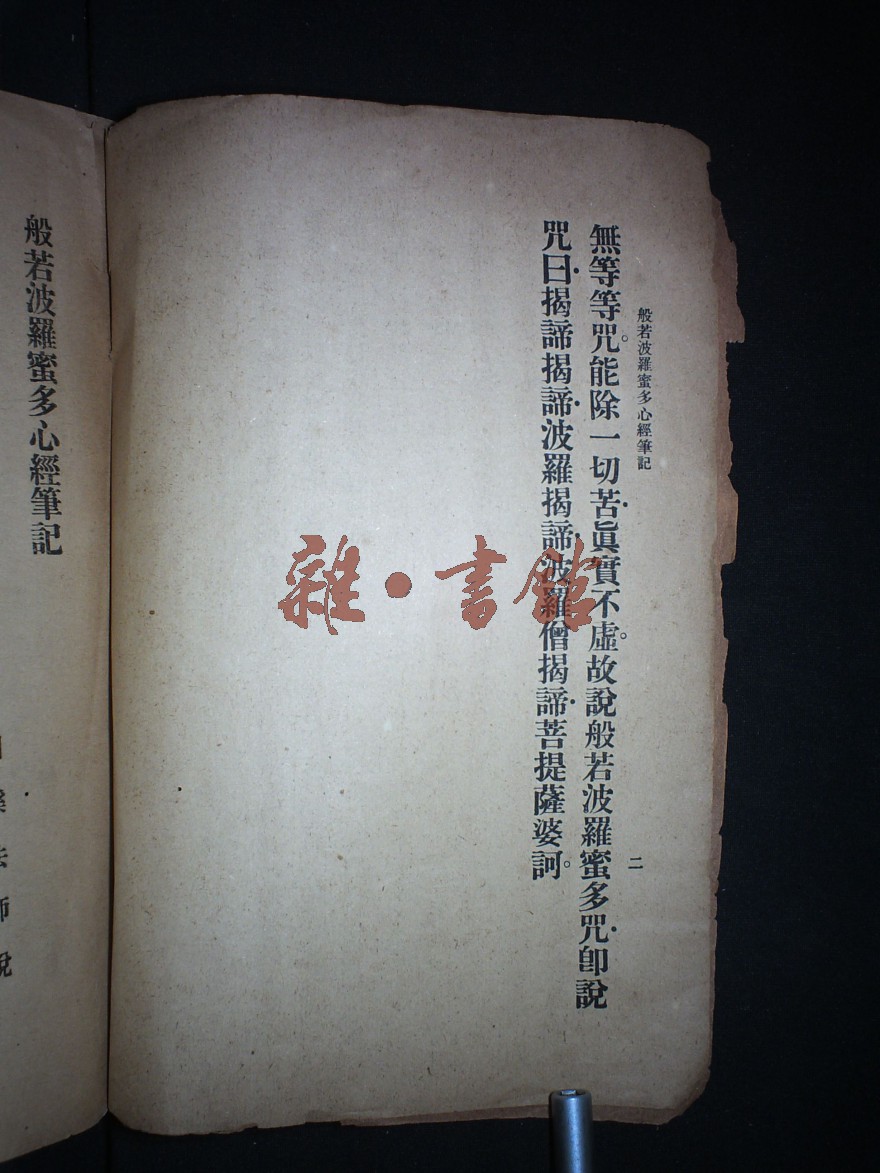 般若波羅蜜多心經筆記
二
無等等咒。能除一切苦・眞實不虛。故說般若波羅蜜多咒・卽說
咒曰・揭諦揭諦・波羅揭諦・波羅僧揭諦・菩提薩婆訶。
般若波羅蜜多心經筆記
法師說
雜・書館